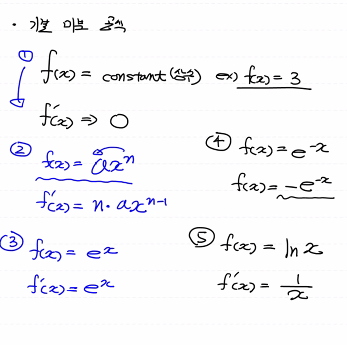 · 기본 미분 공식
① f(x) = constant (상수) ex) f(x) = 3
f'(x) ⇒ 0
② f(x) = axⁿ
f'(x) = n·axⁿ⁻¹
③ f(x) = eˣ
f'(x) = eˣ
④ f(x) = e⁻ˣ
f(x) = -e⁻ˣ
⑤ f(x) = ln x
f'(x) = 1/x